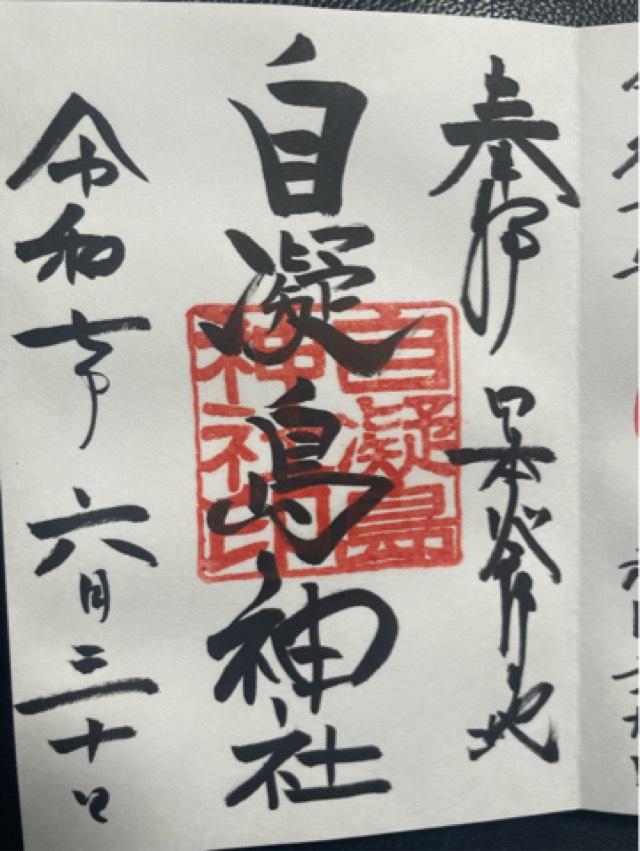 奉拝 日本発祥地
自凝島神社
自凝島
神社印
令和七年 六月三十日